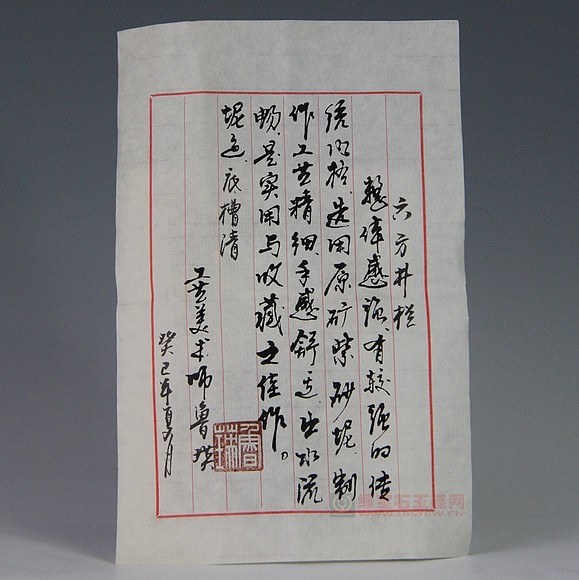 六方井栏
整体感强、有较强的传
统风格，选用原矿紫砂坭，制
作工艺精细，手感舒适、出水流
畅，是实用与收藏之佳作。
坭色、底槽清
工艺美术师鲁
癸巳年